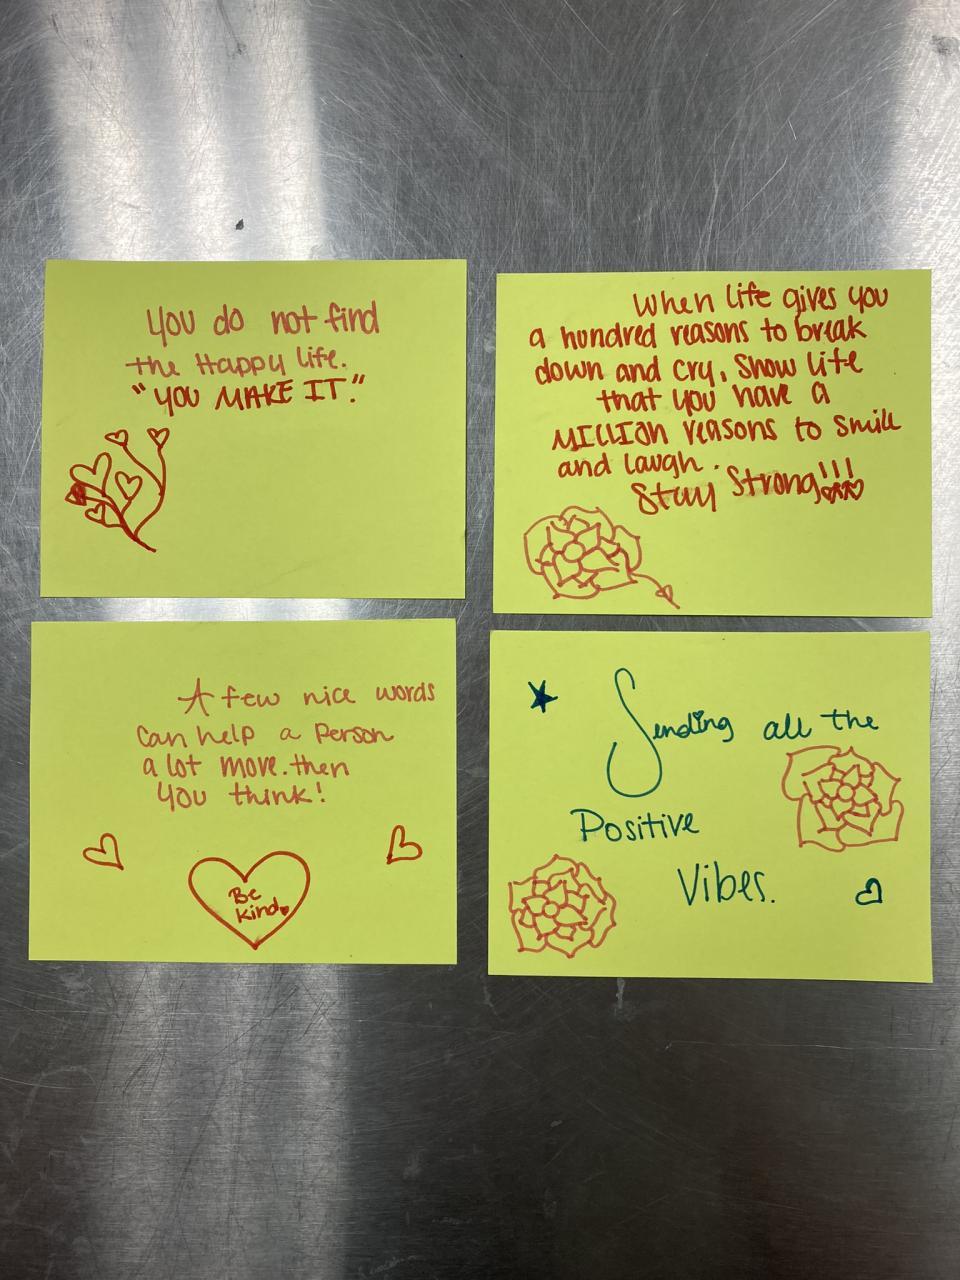 You do not find
the Happy life.
"YOU MAKE IT."
When life gives you
a hundred reasons to break
down and cry, Show life
that you have a
MILLION reasons to smile
and laugh.
Stay Strong!!!
A few nice words
can help a Person
a lot more.then
You think!
Be
kind.
Sending all the
Positive
Vibes.